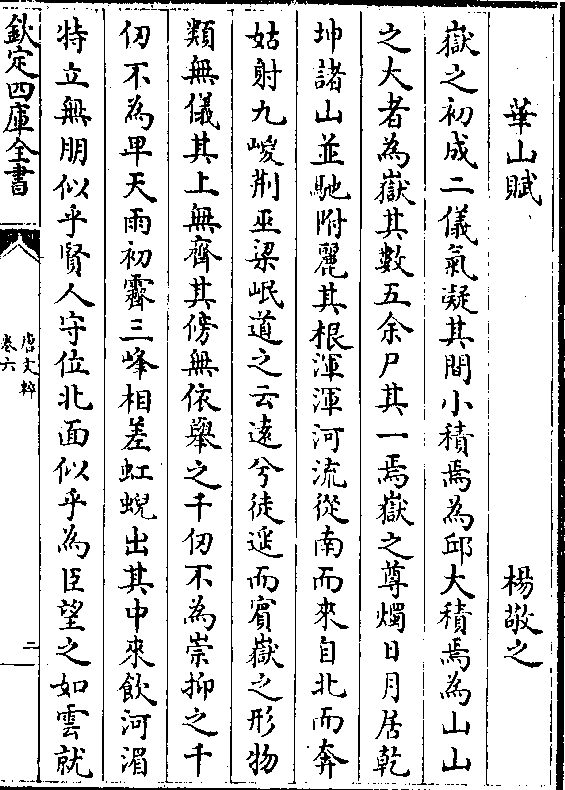 華山賦　楊敬之
嶽之初成二儀氣凝其間小積焉為邱大積焉為山山
之大者為嶽其數五余尸其一焉嶽之尊燭日月居乾
坤諸山並馳附麗其根渾渾河流從南而來自北而奔
姑射九嵕荆巫梁岷道之云遠兮徒遥而賓嶽之形物
類無儀其上無齊其傍無依舉之千仞不為崇抑之千
仞不為卑天雨初霽三峰相差虹蜺出其中來飲河湄
特立無朋似乎賢人守位北面似乎為臣望之如雲就
欽定四庫全書
唐文粹
卷六
二